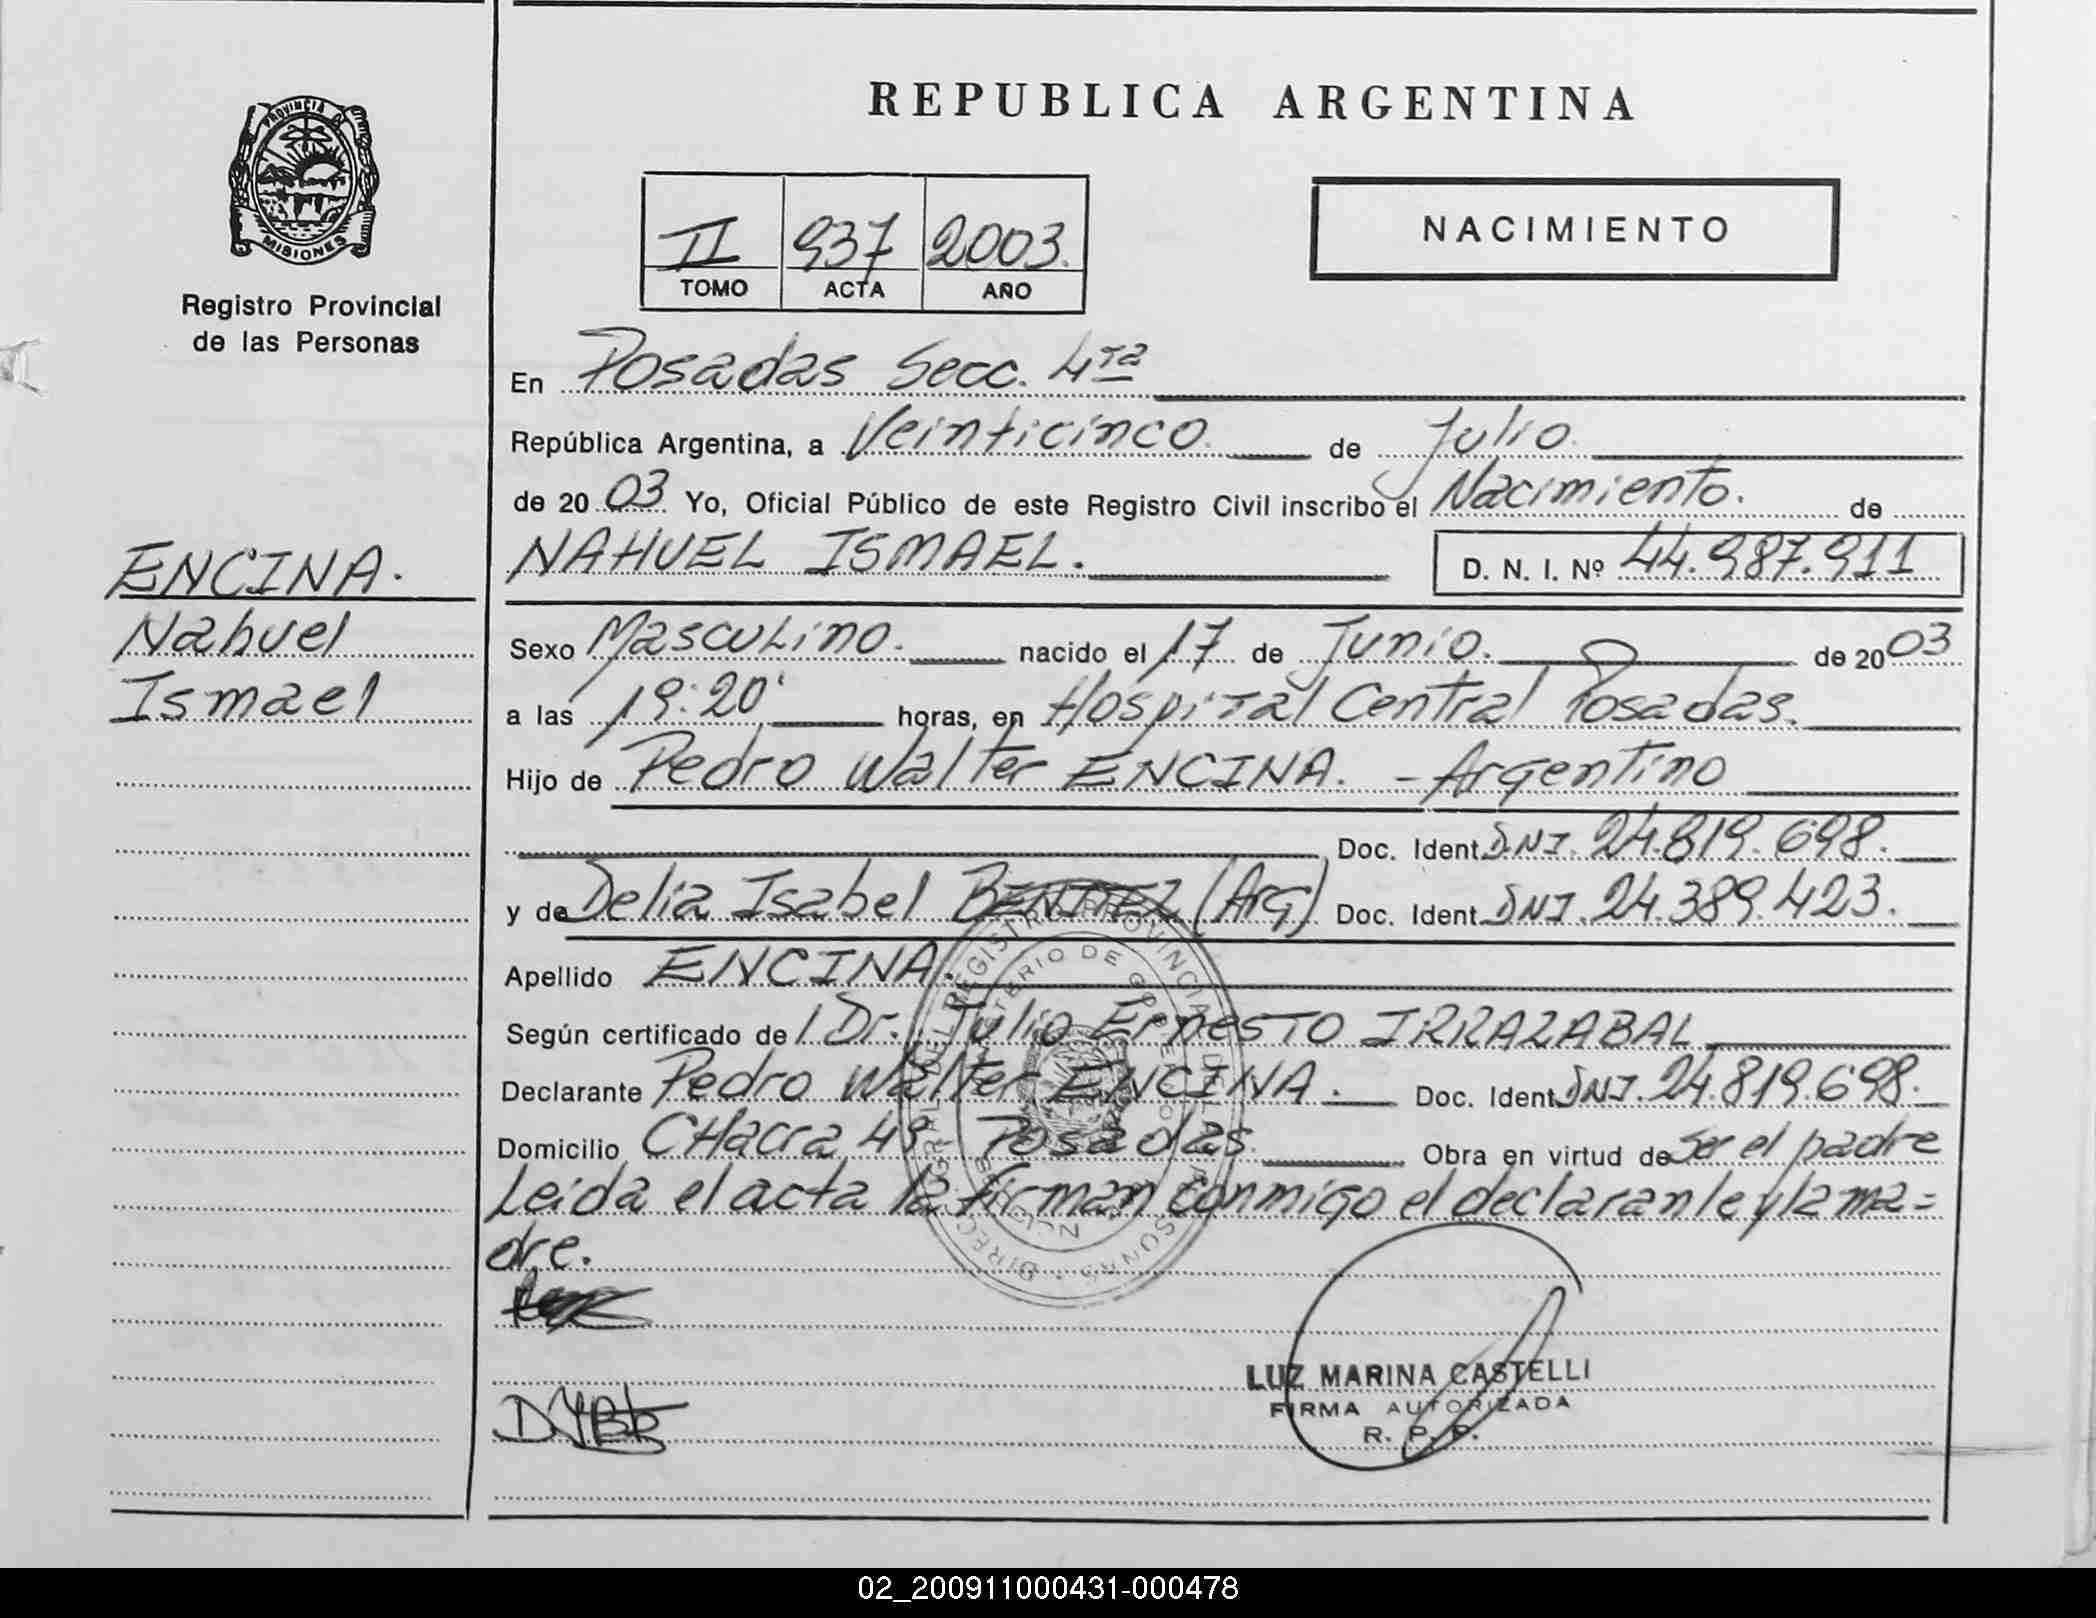 REPUBLICA ARGENTINA
PROVINCIA DE
MISIONES
Registro Provincial
de las Personas
II 937 2003.
TOMO ACTA AÑO
NACIMIENTO
ENCINA.
Nahuel
Ismael
En Posadas Secc. 4ta
República Argentina, a Veinticinco. de Julio.
de 2003 Yo, Oficial Público de este Registro Civil inscribo el Nacimiento. de
NAHUEL ISMAEL. D. N. I. Nº 44.987.911
Sexo Masculino. nacido el 17 de Junio. de 2003
a las 19:20' horas, en Hospital Central Posadas.
Hijo de Pedro Walter ENCINA. - Argentino
Doc. Ident. DNI. 24.819.698.
y de Delia Isabel BENITEZ (Arg) Doc. Ident. DNI. 24.389.423.
Apellido ENCINA.
Según certificado de Dr. Julio Ernesto IRRAZABAL
Declarante Pedro Walter ENCINA. Doc. Ident. DNI. 24.819.698.
Domicilio CHacra 49 Posadas. Obra en virtud de Ser el padre
Leida el acta la firman conmigo el declarante y la ma=
dre.
LUZ MARINA CASTELLI
FIRMA AUTORIZADA
R. P. P.
02_200911000431-000478